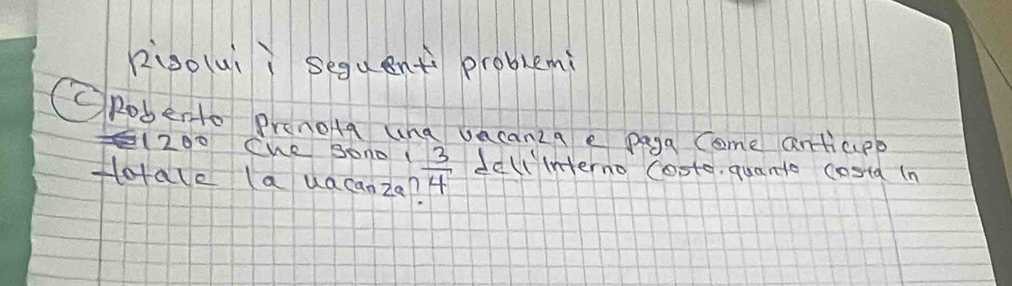 Risolvi i seguenti problemi
C Roberto Prenota una vacanza e paga Come anticipo
€1200 Che sono i 3/4 dell'interno Costo. quanto costa in
totale la vacanza?